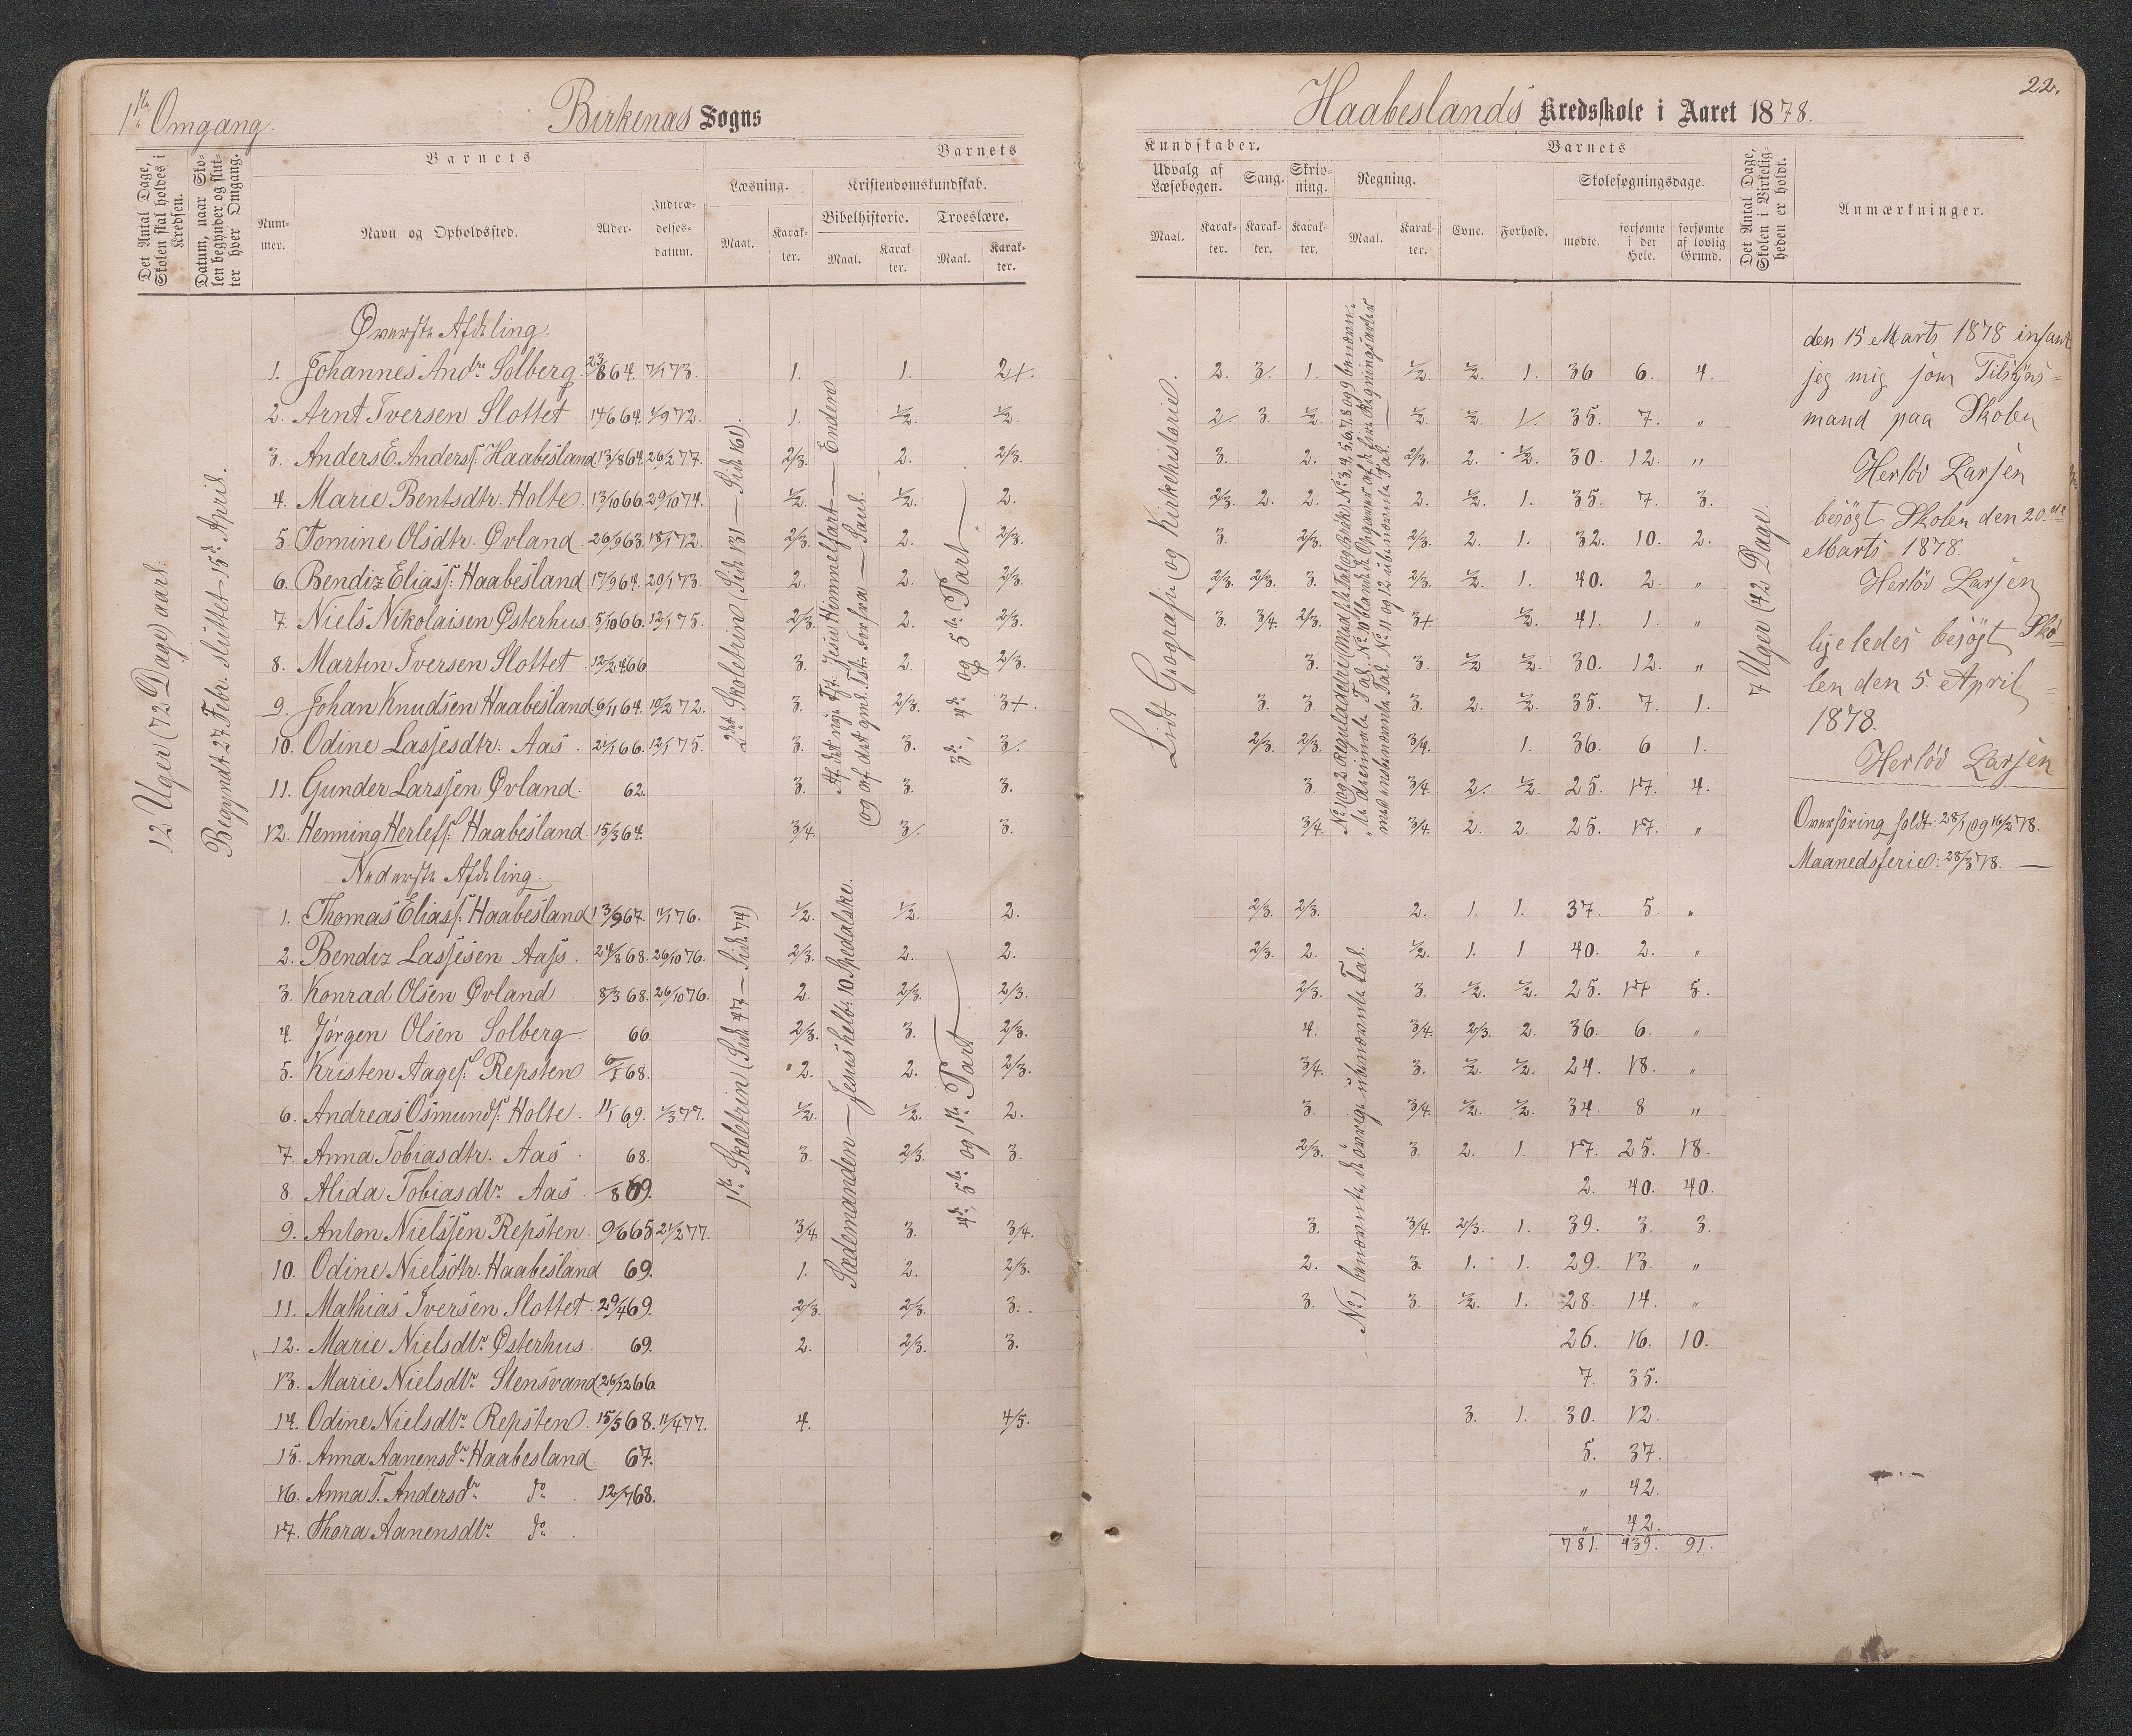 1ste Omgang.
Birkenæs Sogns
Det Antal Dage, Skolen skal holdes i Kredsen.
Datum, naar Skolen begynder og slutter hver Omgang.
Barnets
Nummer.
Navn og Opholdssted.
Alder.
Indtrædelses-datum.
Barnets
Læsning.
Kristendomskundskab.
Maal.
Karakter.
Bibelhistorie.
Troeslære.
Maal.
Karakter.
Maal.
Karakter.
12 Uger (72 Dage) aarl:
Begyndt 27 Febr. sluttet 15de April.
Øverste Afdeling.
1. Johannes Andrs Solberg. 23/8 64. 7/1 73. 1. 1. 2+.
2. Arnt Iversen Slottet 14/6 64. 4/9 72. 1. 1/2. 1/2.
3. Anders E. Anders: Haabesland 13/8 64. 26/2 77. 2/3. 2. 2/3.
4. Marie Bentsdtr. Holte. 13/10 66. 29/10 74. 1/2. 1/2. 2.
5. Tomine Olsdtr. Øvland. 26/9 63. 18/1 72. 2/3. 2. 2/3.
6. Bendiz Elias: Haabesland 17/9 64. 20/1 73. 2. 2. 2/3.
7. Niels Nikolaisen Østerhus 5/10 66. 12/1 75. 2/3. 2. 2/3.
8. Martin Iversen Slottet. 12/2 66 3. 2. 2/3.
9. Johan Knudsen Haabesland 6/11 64. 19/2 72. 3. 2/3. 3+.
10. Odine Lassesdtr: Aas. 21/1 66. 12/1 75. 3. 3. 3/.
11. Gunder Larssen Øvland. 62. 3. 3. 3.
12. Henning Herlefs: Haabesland 15/3 64. 3/4. 3/. 3.
2det Skoletrin (Side 131 — Side 161).
Af det nye Tst: Jesu Himmelfart — Enden
og af det gml. Tst: Forfra — Saul.
3die, 4de og 5te Part
Nederste Afdeling.
1. Thomas Elias: Haabesland 13/9 67. 11/1 76. 1/2. 1/2. 2.
2. Bendiz Lassesen Aass. 24/8 68. 26/10 76. 2/3. 2. 2.
3. Konrad Olsen Øvland 8/3 68. 26/10 76. 2. 2/3. 2/3.
4. Jørgen Olsen Solberg 66 2/3. 3. 2/3.
5. Kristen Aages: Repsten 6/1 68. 2. 2. 2/3.
6. Andreas Osmunds: Holte. 11/1 69. 1/3 77. 1/2. 1/2. 2.
7. Anna Tobiasdtr. Aas. 68. 3. 2/3. 3.
8. Alida Tobiasdtr. Aas. /8 69.
9. Anton Nielssen Repsten. 9/6 65 21/2 77. 3/4. 3. 3/4.
10. Odine Nielsdtr. Haabesland 69. 1. 2. 2/3.
11. Mathias Iversen Slottet. 29/4 69. 2/3. 2/3. 3.
12. Marie Nielsdtr. Østerhus. 69. 2. 2/3. 3.
13. Marie Nielsdtr. Stensvand 26/12 66.
14. Odine Nielsdtr. Repsten. 15/5 68. 11/4 77. 4. 4/5.
15. Anna Aanensdr Haabesland 67.
16. Anna T. Andersdr do 12/7 68.
17. Thora Aanensdtr. do
1ste Skoletrin (Side 47 — Side 74)
Sædemanden — Jesus helbr: 10 Spedalske.
4de, 5te og 1ste Part
22.
Haabeslands Kredsskole i Aaret 1878.
Kundskaber.
Udvalg af Læsebogen.
Sang.
Skrivning.
Regning.
Maal.
Karakter.
Karakter.
Karakter.
Maal.
Karakter.
Barnets
Evne.
Forhold.
Skolesøgningsdage.
mødte.
forsømte i det Hele.
forsømte af lovlig Grund.
Det Antal Dage, Skolen i Virkeligheden er holdt.
Anmærkninger.
Lidt Geografi og Kirkehistorie.
7 Uger (42 Dage.
2. 3/. 1. 1/2. 1/2. 1. 36 6. 4.
2/. 3. 1/2. 1/2. 1/2. 1/. 35. 7. "
3. 2. 2/3. 2. 1/2. 30. 12. "
2/3. 2. 2. 2. 1/2. 1. 35. 7. 3.
3. 2/3. 2/3. 2. 1. 32. 10. 2.
2/3. 2/3. 3. 2/3. 1/2. 1. 40. 2. "
3. 3/4. 2/3. 3+. 1/2. 41. 1. "
3. 3. 1/2 1/2. 30. 12. "
3. 3. 3. 2. 1/2. 35. 7. 1.
2/3. 2/3. 3/4. 1. 36. 6 1.
3. 3/4. 2/. 1/2. 25. 17. 4.
3/4. 3/4. 2. 2. 25. 17. "
2/3. 2/3. 2. 1. 1. 37. 5. "
2/3. 2. 1/2. 1. 1 40. 2. "
2/3. 3. 1/2. 1/2. 25. 17 5.
4. 3/4. 2/3. 2. 36. 6. "
3/4. 3. 1/2. 1/2. 24. 18. "
3. 3/4. 1/2. 1/2. 34. 8 "
2/3. 3. 2. 1. 17. 25. 18.
2. 40. 40.
3. 3/4. 2/3. 1. 39. 3. 3.
2. 3. 1. 1. 29. 13. "
3. 3. 1/2. 1. 28. 14. "
26. 16. 10.
7. 35.
3. 1. 30. 12.
5. 37.
" 42.
" 42.
781. 439. 91.
No 1 benævnte, de øvrige ubenævnte Tal.
den 15 Marts 1878 infant
jeg mig som Tilsyns=
mand paa Skolen
Herlöv Larsen
besögt Skolen den 20de
Marts 1878.
Herlöv Larsen
ligeledes besögt Sko=
len den 5. April
1878.
Herlöv Larsen
Overhöring holdt: 28/1 og 16/2 78.
Maanedsferie: 28/3 78. —